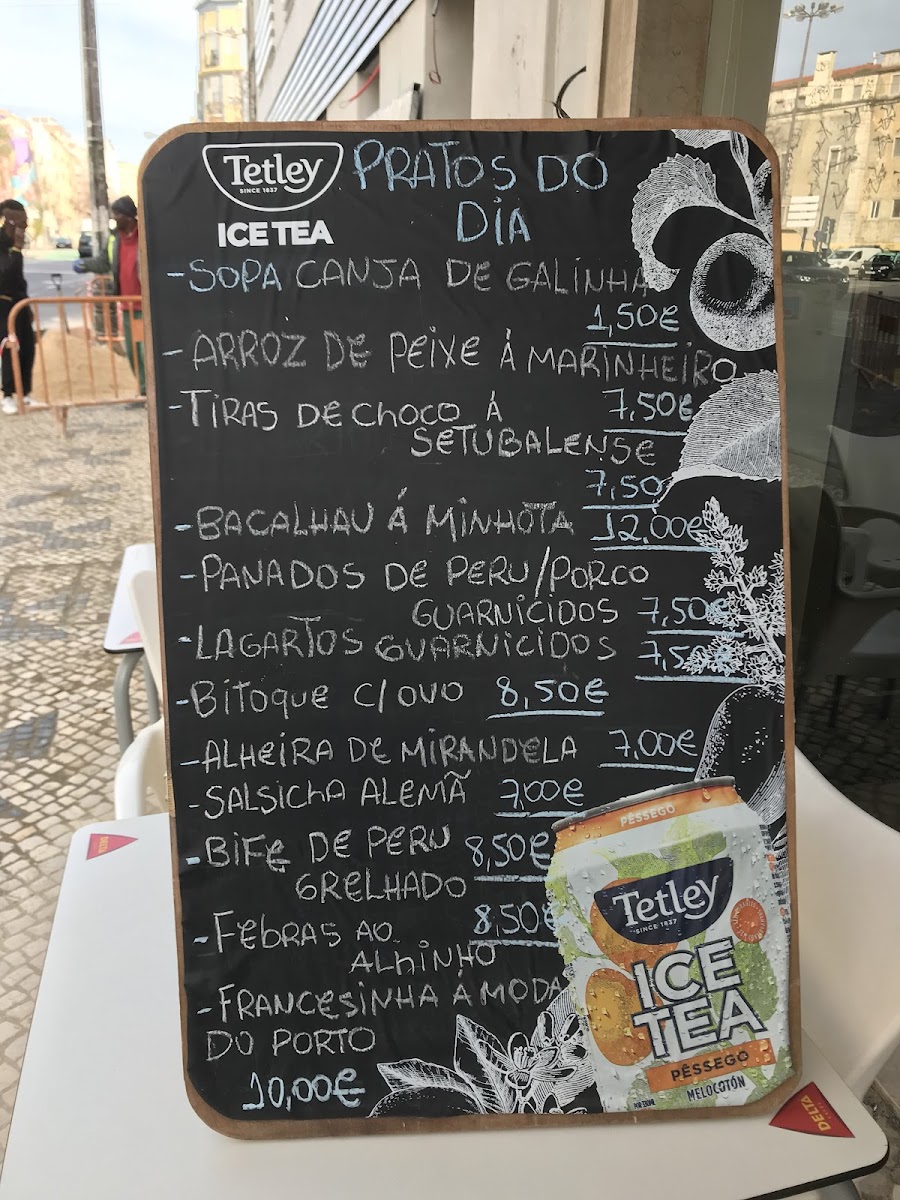 Tetley
SINCE 1837
ICE TEA
PRATOS DO
DIA
-SOPA CANJA DE GALINHA
1,50€
-ARROZ DE PEIXE Á MARINHEIRO
7,50€
-TIRAS DE CHOCO Á
SETUBALENSE
7,50
-BACALHAU Á MINHOTA 12,00€
-PANADOS DE PERU/PORCO
GUARNICIDOS 7,50€
-LAGARTOS GUARNICIDOS 7,50€
-BITOQUE C/OVO 8,50€
-ALHEIRA DE MIRANDELA 7,00€
-SALSICHA ALEMÃ 7,00€
-BIFE DE PERU 8,50€
GRELHADO
-FEBRAS AO 8,50€
ALHINHO
-FRANCESINHA Á MODA
DO PORTO
10,00€
PÊSSEGO
Tetley
SINCE 1837
ICE
TEA
PÊSSEGO
MELOCOTÓN
DELTA
DELTA